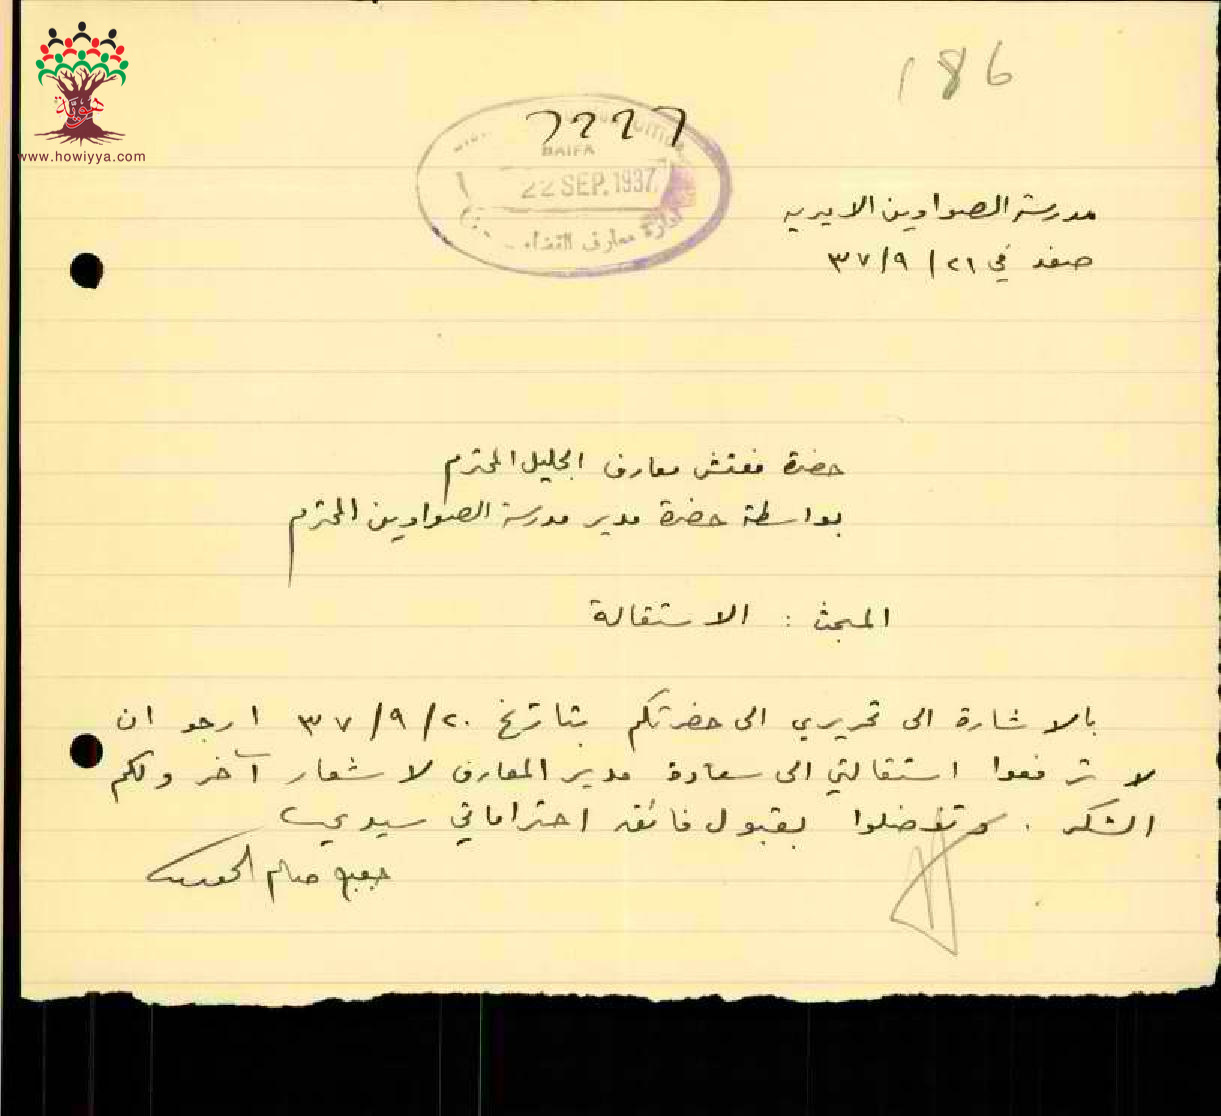 186
7227
HAIFA
22 SEP. 1937
ادارة معارف القضاء
هوية
www.howiyya.com
مدرسة الصواوين الاميريه
صفد في ٢١ / ٩ / ٣٧
حضرة مفتش معارف الجليل المحترم
بواسطة حضرة مدير مدرسة الصواوين المحترم
المبحث : الاستقالة
بالاشارة الى تحريري الى حضرتكم بتاريخ ٢٠ / ٩ / ٣٧ ارجو ان
لا ترفعوا استقالتي الى سعادة مدير المعارف لاشعار آخر ولكم
الشكر . وتفضلوا بقبول فائق احتراماتي سيدي
صالح